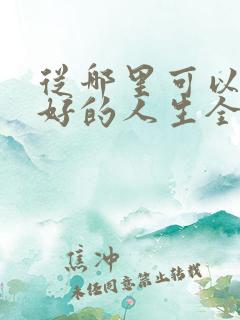 從哪里可以
好的人生全
焦冲
未经同意禁止转载